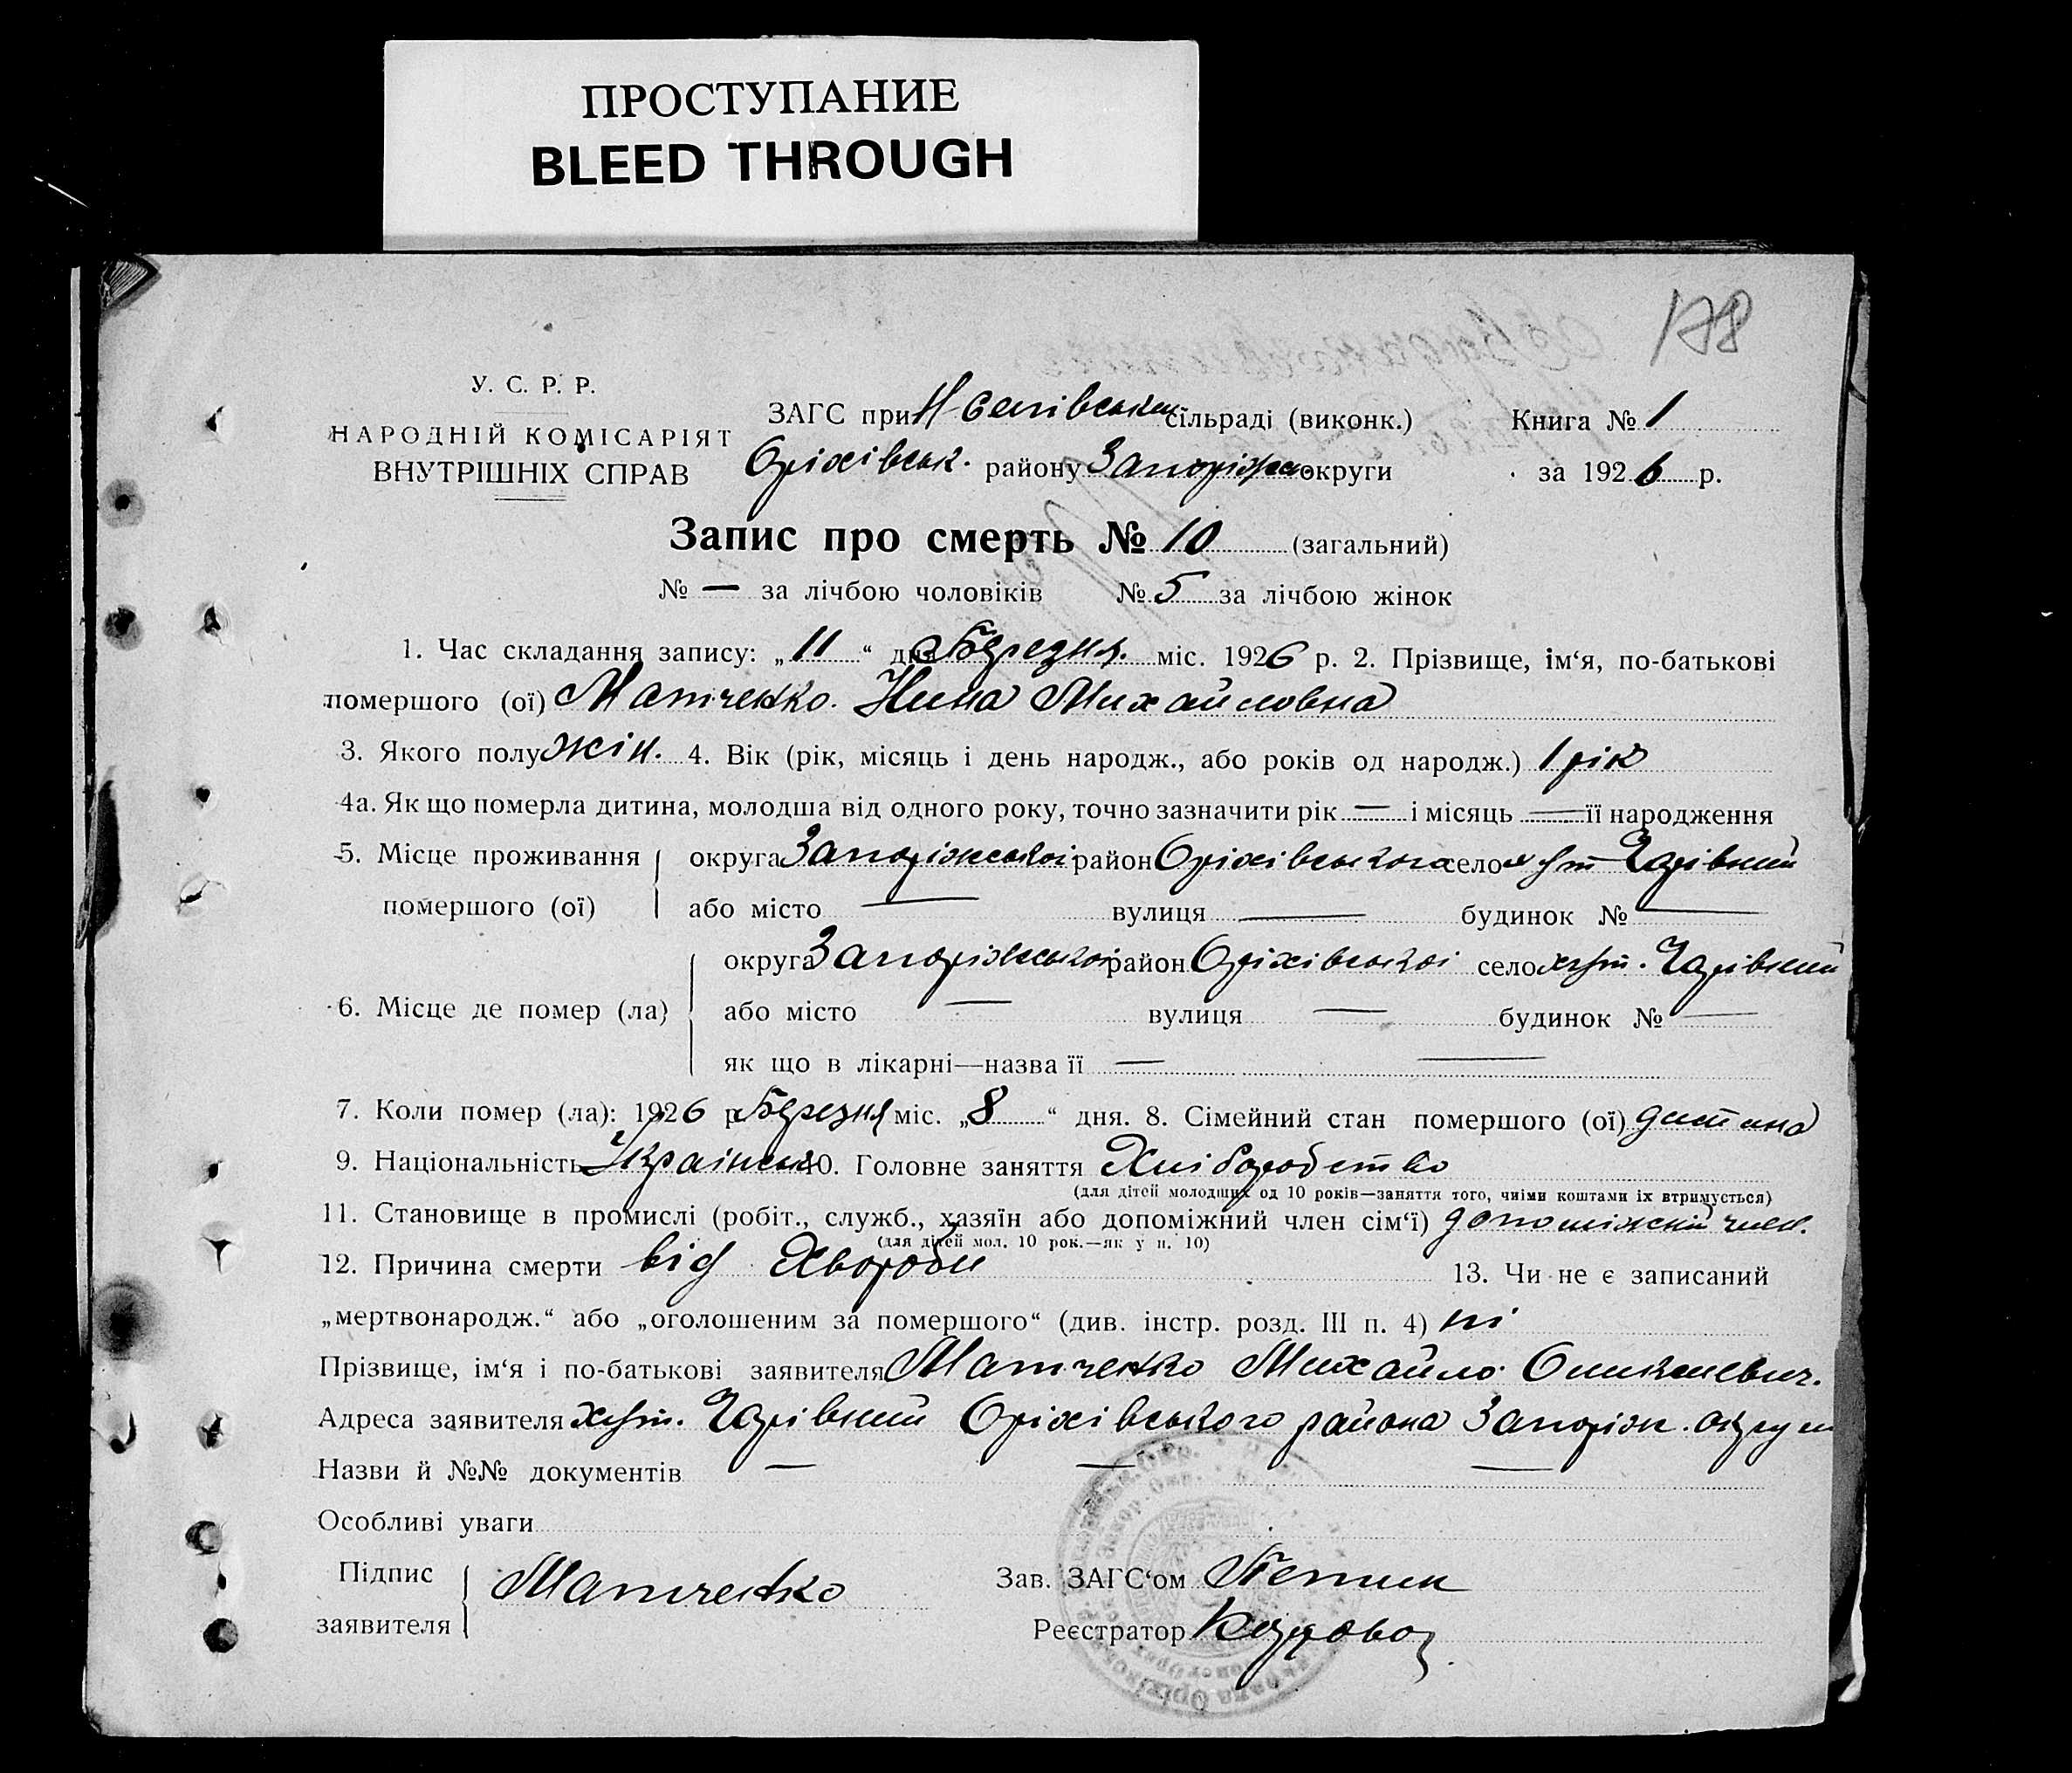 ПРОСТУПАНИЕ
BLEED THROUGH
178
У. С. Р. Р.
НАРОДНІЙ КОМІСАРІЯТ
ВНУТРІШНІХ СПРАВ
ЗАГС при сільраді (виконк.)
Оріхівськ. району Запоріжс. округи
Книга № 1
за 1926 р.
Запис про смерть № 10 (загальний)
№ — за лічбою чоловіків № 5 за лічбою жінок
1. Час складання запису: „11“ дня Березня. міс. 1926 р. 2. Прізвище, ім‘я, по-батькові
помершого (ої) Матченко. Нина Михайловна
3. Якого полу жін. 4. Вік (рік, місяць і день народж., або років од народж.) 1 рік
4а. Як що померла дитина, молодша від одного року, точно зазначити рік — і місяць — її народження
5. Місце проживання помершого (ої) округа Запоріжськоі район Оріхівського село хут. Чарівний
або місто — вулиця — будинок № —
6. Місце де помер (ла) округа Запоріжськоі район Оріхівськоі село хут. Чарівний
або місто — вулиця — будинок № —
як що в лікарні—назва її — —
7. Коли помер (ла): 1926 р. Березня міс. „8“ дня. 8. Сімейний стан помершого (ої) дитина
9. Національність Украінська 10. Головне заняття Хліборобство
(для дітей молодших од 10 років—заняття того, чиїми коштами їх втримується)
11. Становище в промислі (робіт., служб., хазяїн або допоміжний член сім‘ї) допоміжний член.
(для дітей мол. 10 рок.—як у п. 10)
12. Причина смерти від Хвороби 13. Чи не є записаний
„мертвонародж.“ або „оголошеним за помершого“ (див. інстр. розд. III п. 4) ні
Прізвище, ім‘я і по-батькові заявителя Матченко Михайло
Адреса заявителя хут. Чарівний Оріхівського района Запоріж. округи
Назви й №№ документів — — —
Особливі уваги
Підпис заявителя Матченко
Зав. ЗАГС‘ом
Реєстратор